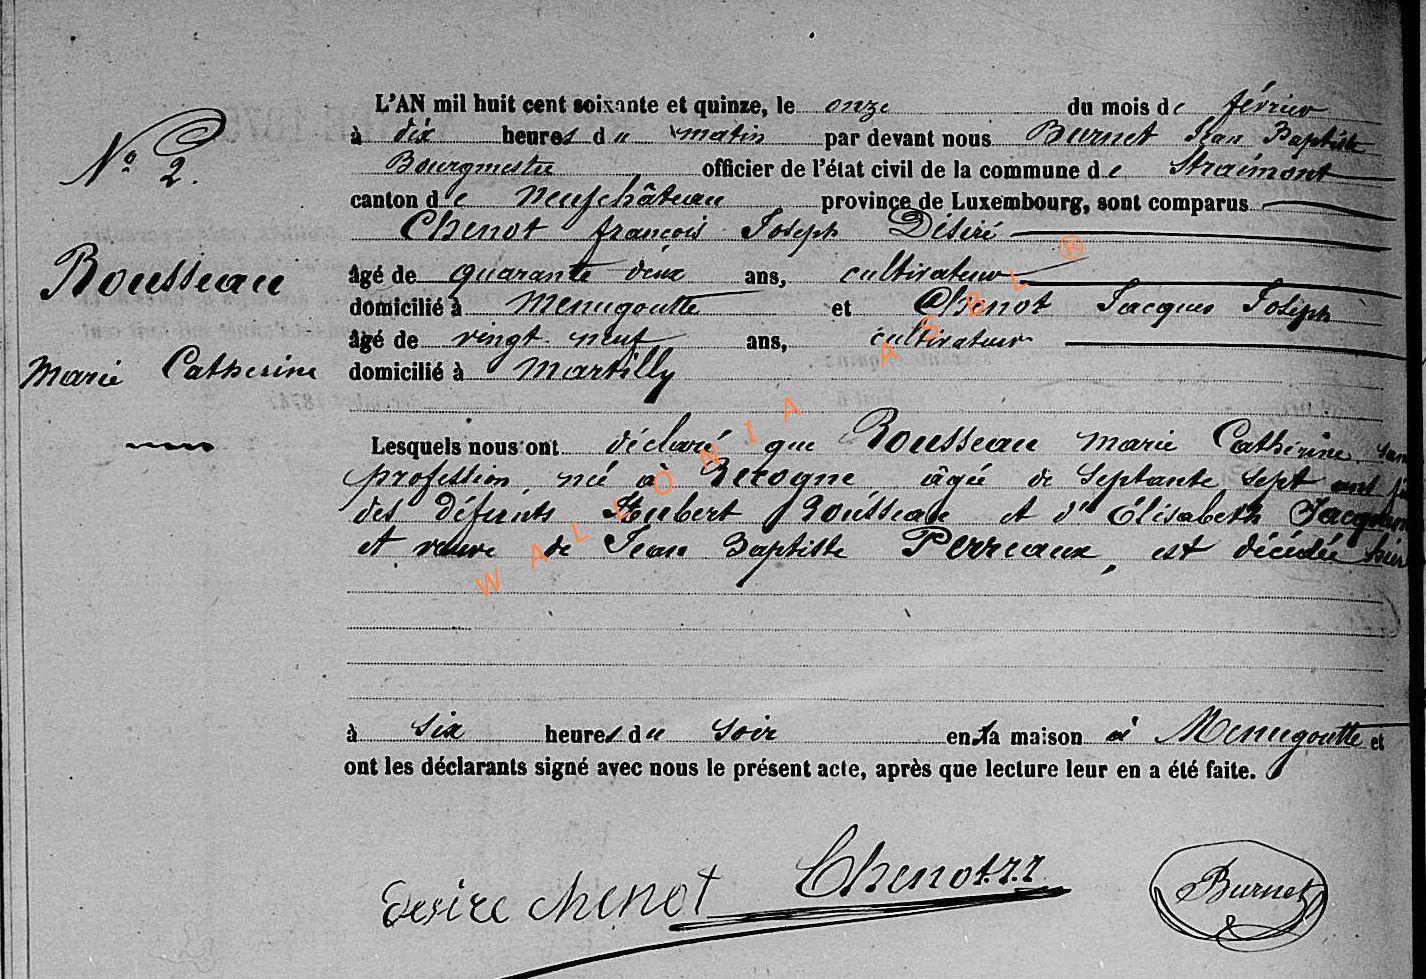 L'AN mil huit cent soixante et quinze, le onze du mois de février
N° 2.
à dix heures du matin par devant nous Burnet Jean Baptiste
Bourgmestre officier de l'état civil de la commune de Straimont
canton de Neufchâteau province de Luxembourg, sont comparus
Chenot françois Joseph Désiré
Rousseau
âgé de quarante deux ans, cultivateur
domicilié à Menugoutte et Chenot Jacques Joseph
âgé de vingt neuf ans, cultivateur
Marie Catherine
domicilié à Martilly
Lesquels nous ont déclaré que Rousseau Marie Catherine sans
profession, née à Recogne âgée de Septante sept ans
des défunts Hubert Rousseau et d'Élisabeth
et veuve de Jean Baptiste Perreaux, est décédée hier
à six heures du soir en sa maison à Menugoutte et
ont les déclarants signé avec nous le présent acte, après que lecture leur en a été faite.
Desire chenot Chenot.J.J Burnet
WALLONIA ASBL ®